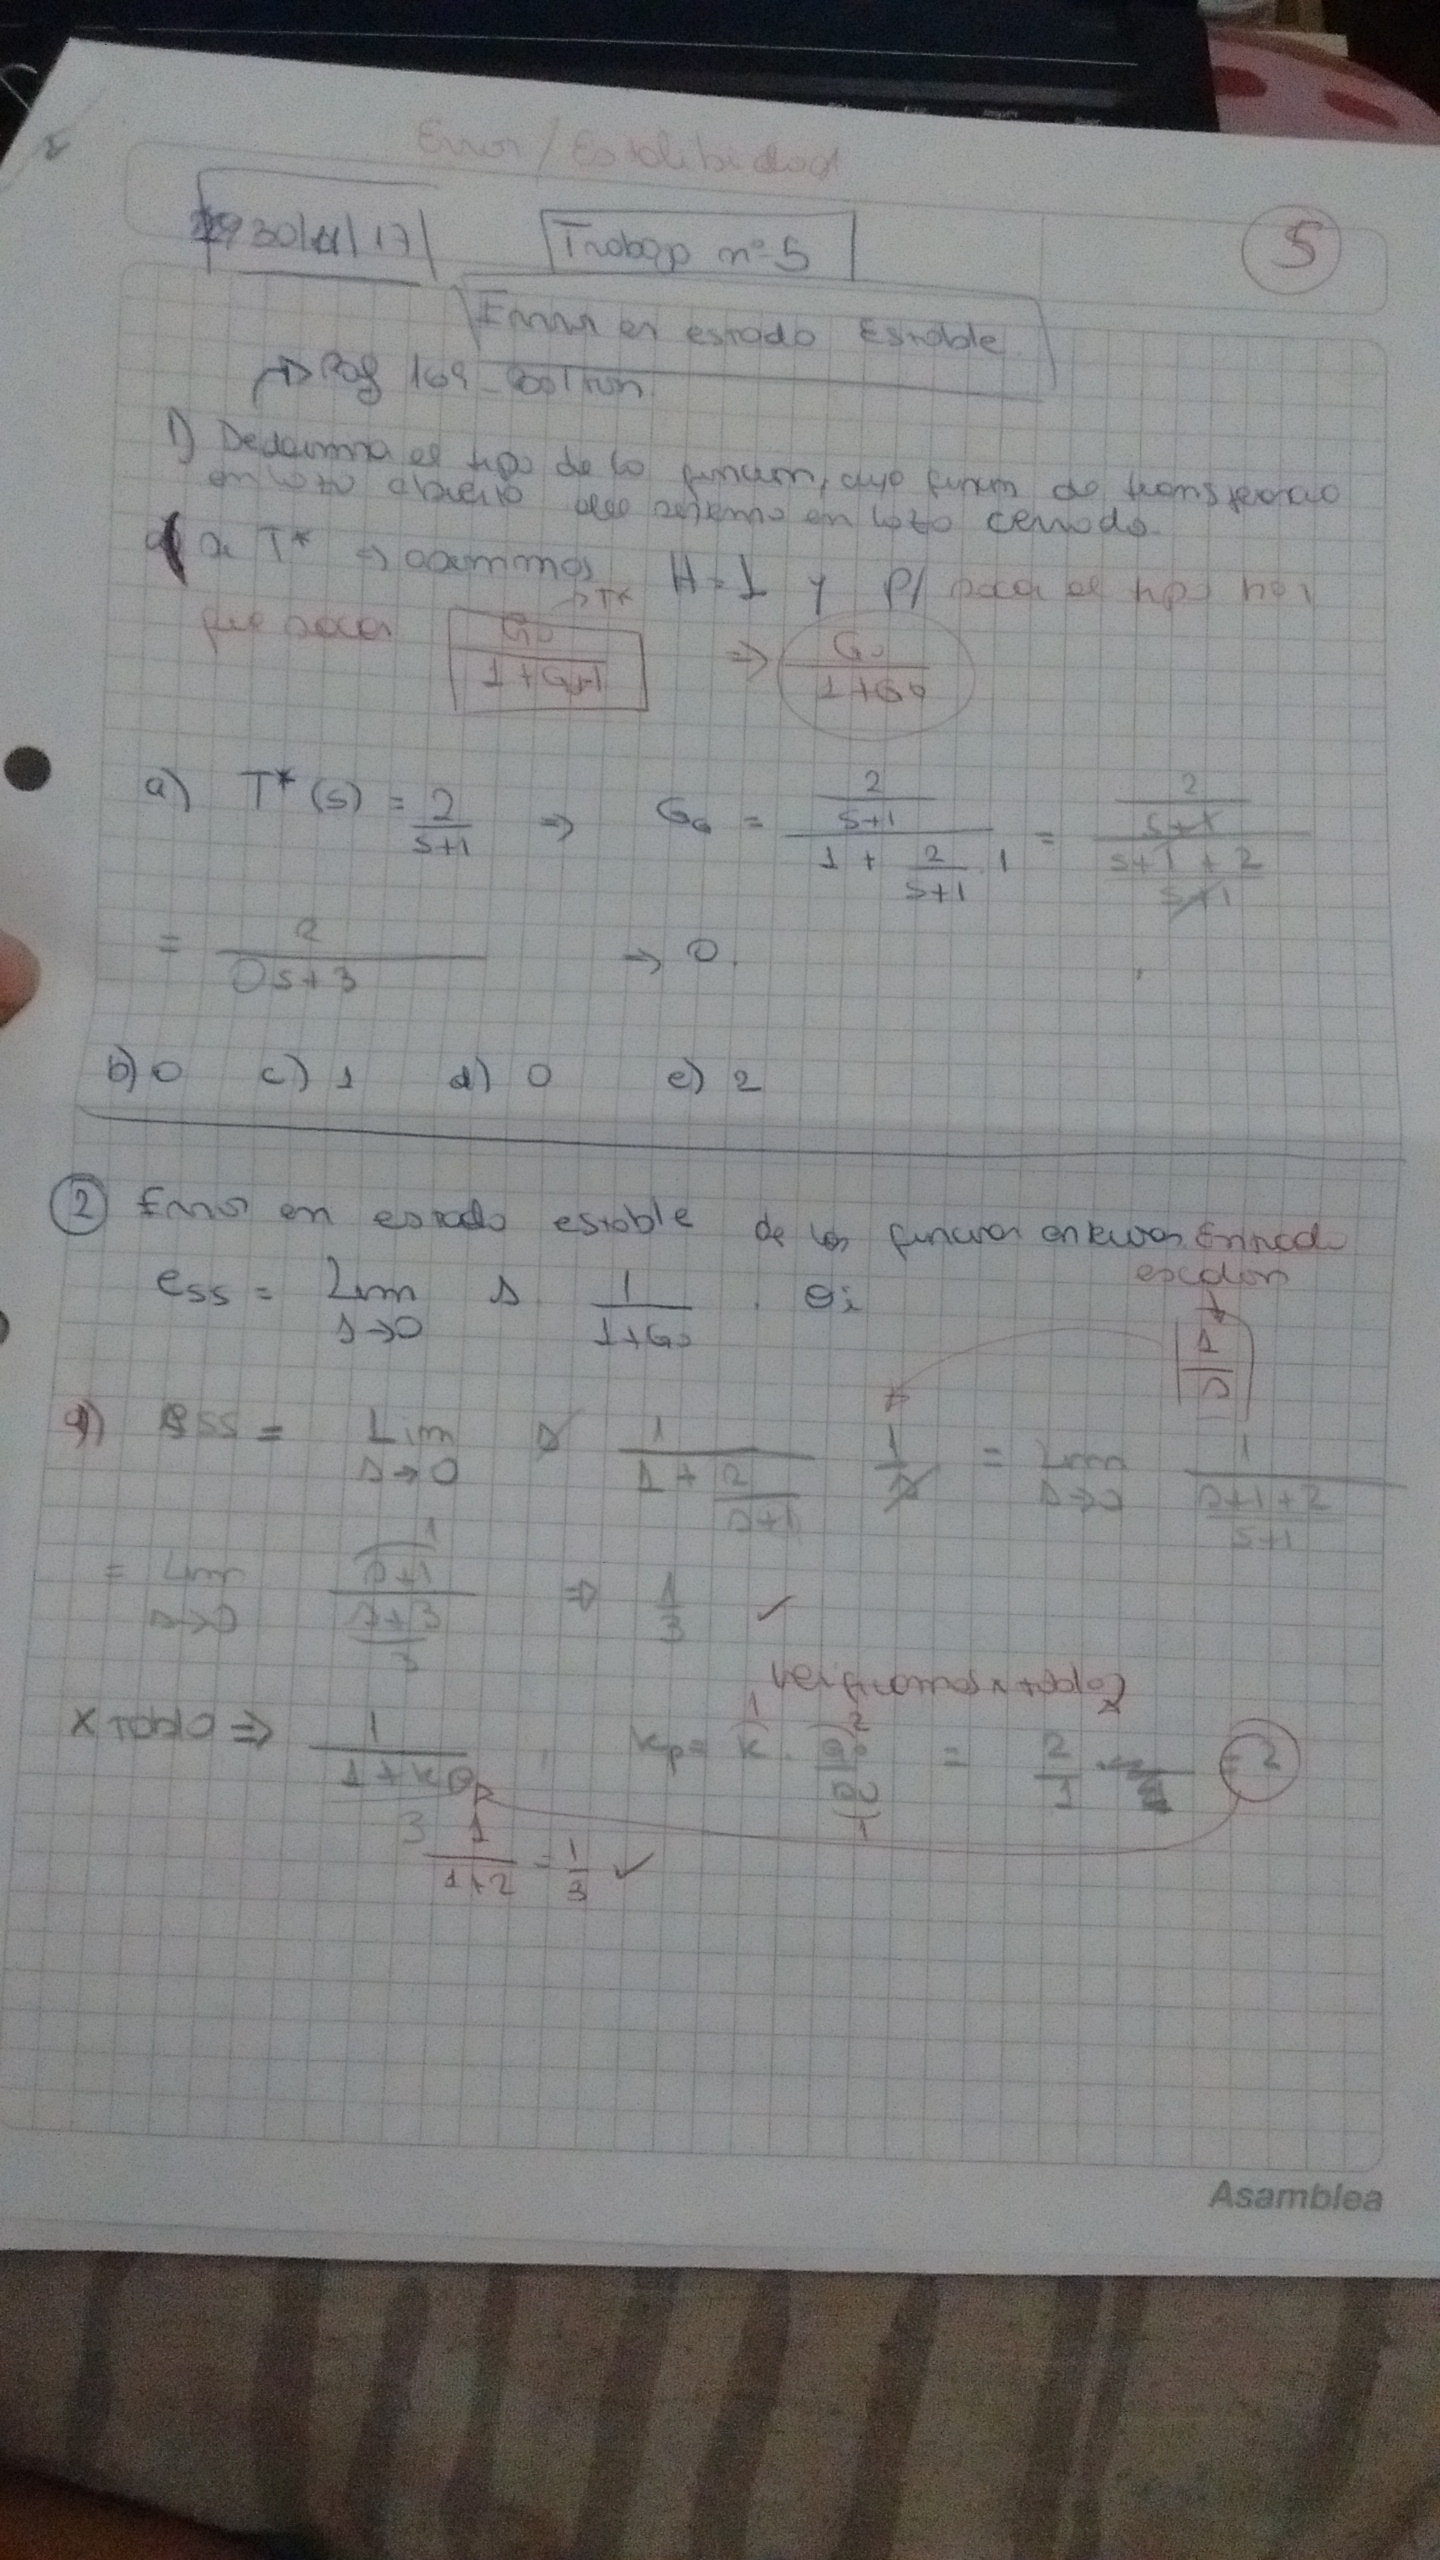 Error / Estabilidad
30/11/17
Trabajo nº 5
5
Error en estado Estable
→ Pag 169 Bolton
1) Determina el tipo de la función, cuya función de transferencia
en lazo abierto en lazo cerrado.
T* ⇒ asumimos H = 1 y P/ sacar el tipo hay
→ T*
que sacar G0 / (1 + G0H) ⇒ G0 / (1 + G0)
a) T*(s) = 2/(s+1) ⇒ G0 = (2/(s+1)) / (1 + 2/(s+1) . 1) = (2/(s+1)) / ((s+1+2)/(s+1))
= 2/(s+3) → 0.
b) 0 c) 1 d) 0 e) 2
② Error en estado estable de las Entrada
escalon
ess = Lim s→0 s 1/(1+G0) . θi
1/s
a) ess = Lim s→0 s 1/(1 + 2/(s+1)) 1/s = Lim s→0 1/((s+1+2)/(s+1))
= Lim s→0 (s+1)/(s+3) ⇒ 1/3 ✓
1
3
Verificamos x tabla
x Tabla ⇒ 1/(1+kp), kp = k . a0/b0 = 2/1 = 2
1 2
1
3
1/(1+2) = 1/3 ✓
Asamblea